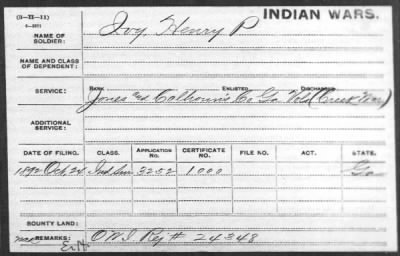 (3-II-11)
INDIAN WARS.
NAME OF SOLDIER: Ivy, Henry P
NAME AND CLASS OF DEPENDENT:
SERVICE: RANK ENLISTED DISCHARGED
Jones and Calhoun's Co Ga Vols (Creek War)
ADDITIONAL SERVICE:
DATE OF FILING. CLASS. APPLICATION No. CERTIFICATE No. FILE NO. ACT. STATE.
1892 Oct 24 Ind Sur 3252 1000 Ga
BOUNTY LAND:
REMARKS: O W I. Rej # 24348